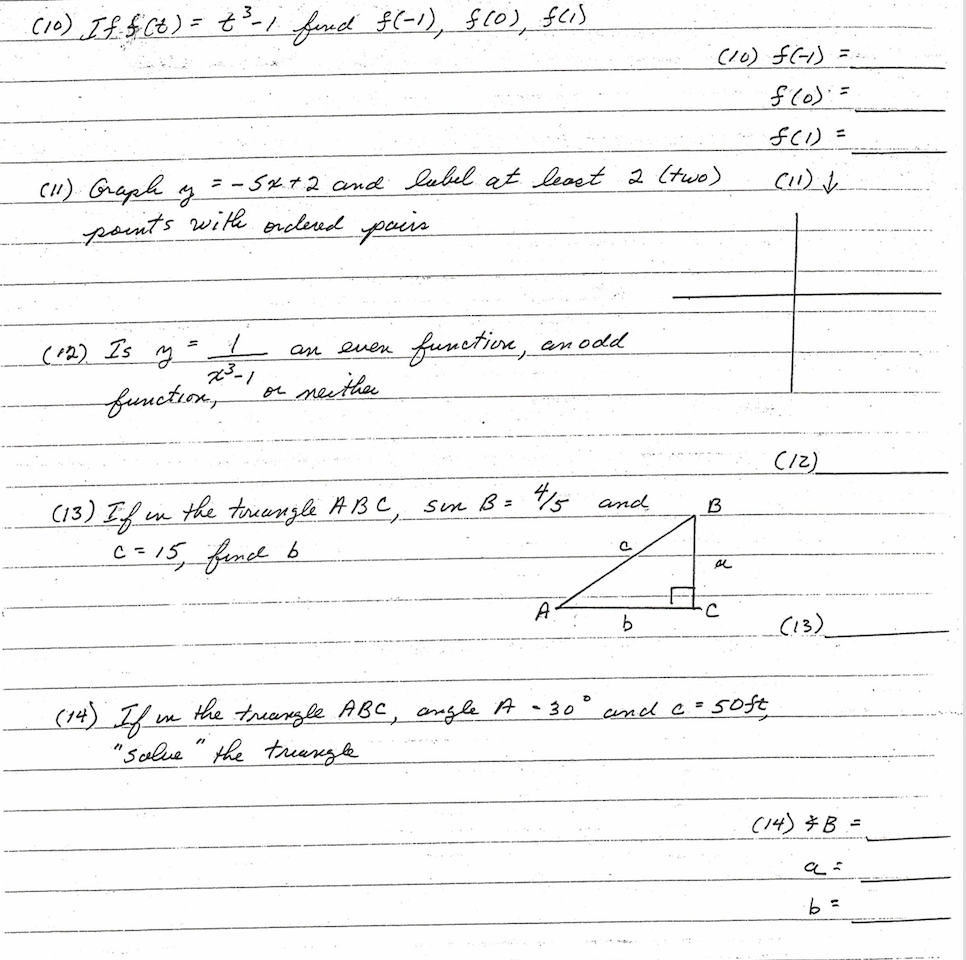 (10) If f(t) = t³-1 find f(-1), f(0), f(1)
(10) f(-1) =
f(0) =
f(1) =
(11) Graph y = -5x+2 and label at least 2 (two)
points with ordered pairs
(11) ↓
(12) Is y = 1/(x³-1) an even function, an odd
function, or neither
(12)
(13) If in the triangle ABC, sin B = 4/5 and
c = 15, find b
B
c
a
A
b
C
(13)
(14) If in the triangle ABC, angle A = 30° and c = 50ft,
"solve" the triangle
(14) ∡B =
a =
b =